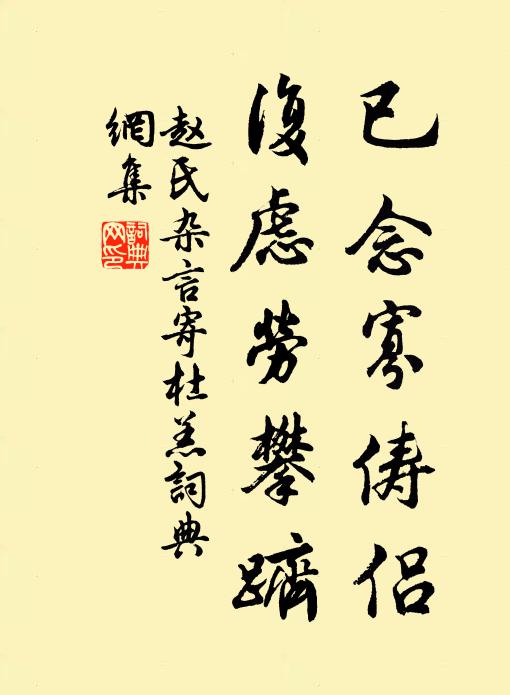 已念寡俦侣
復慮勞攀躋
赵氏杂言寄杜羔詞典
網集
詞典網印